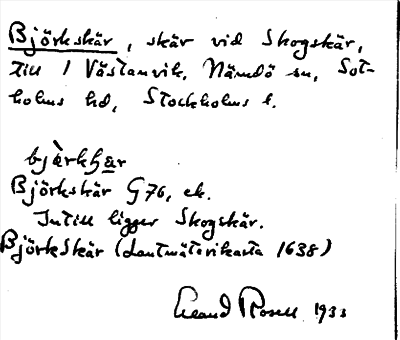 Björkskär, skär vid Skogskär,
till 1 Västanvik, Nämdö sn, Sot-
holms hd, Stockholms l.
bjàrkʃær
Björkskär G76, ek.
Intill ligger Skogskär.
Björkskär (Lantmäterikarta 1638)
Erland Rosell 1933